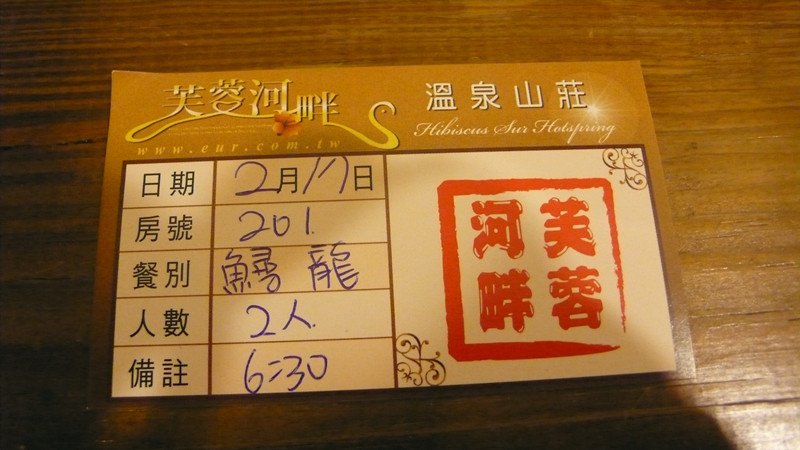 芙蓉河畔 溫泉山莊
Hibiscus Sur Hotspring
www.eur.com.tw
日期 2月17日
房號 201
餐別 鱘龍
人數 2人
備註 6:30
芙蓉
河畔